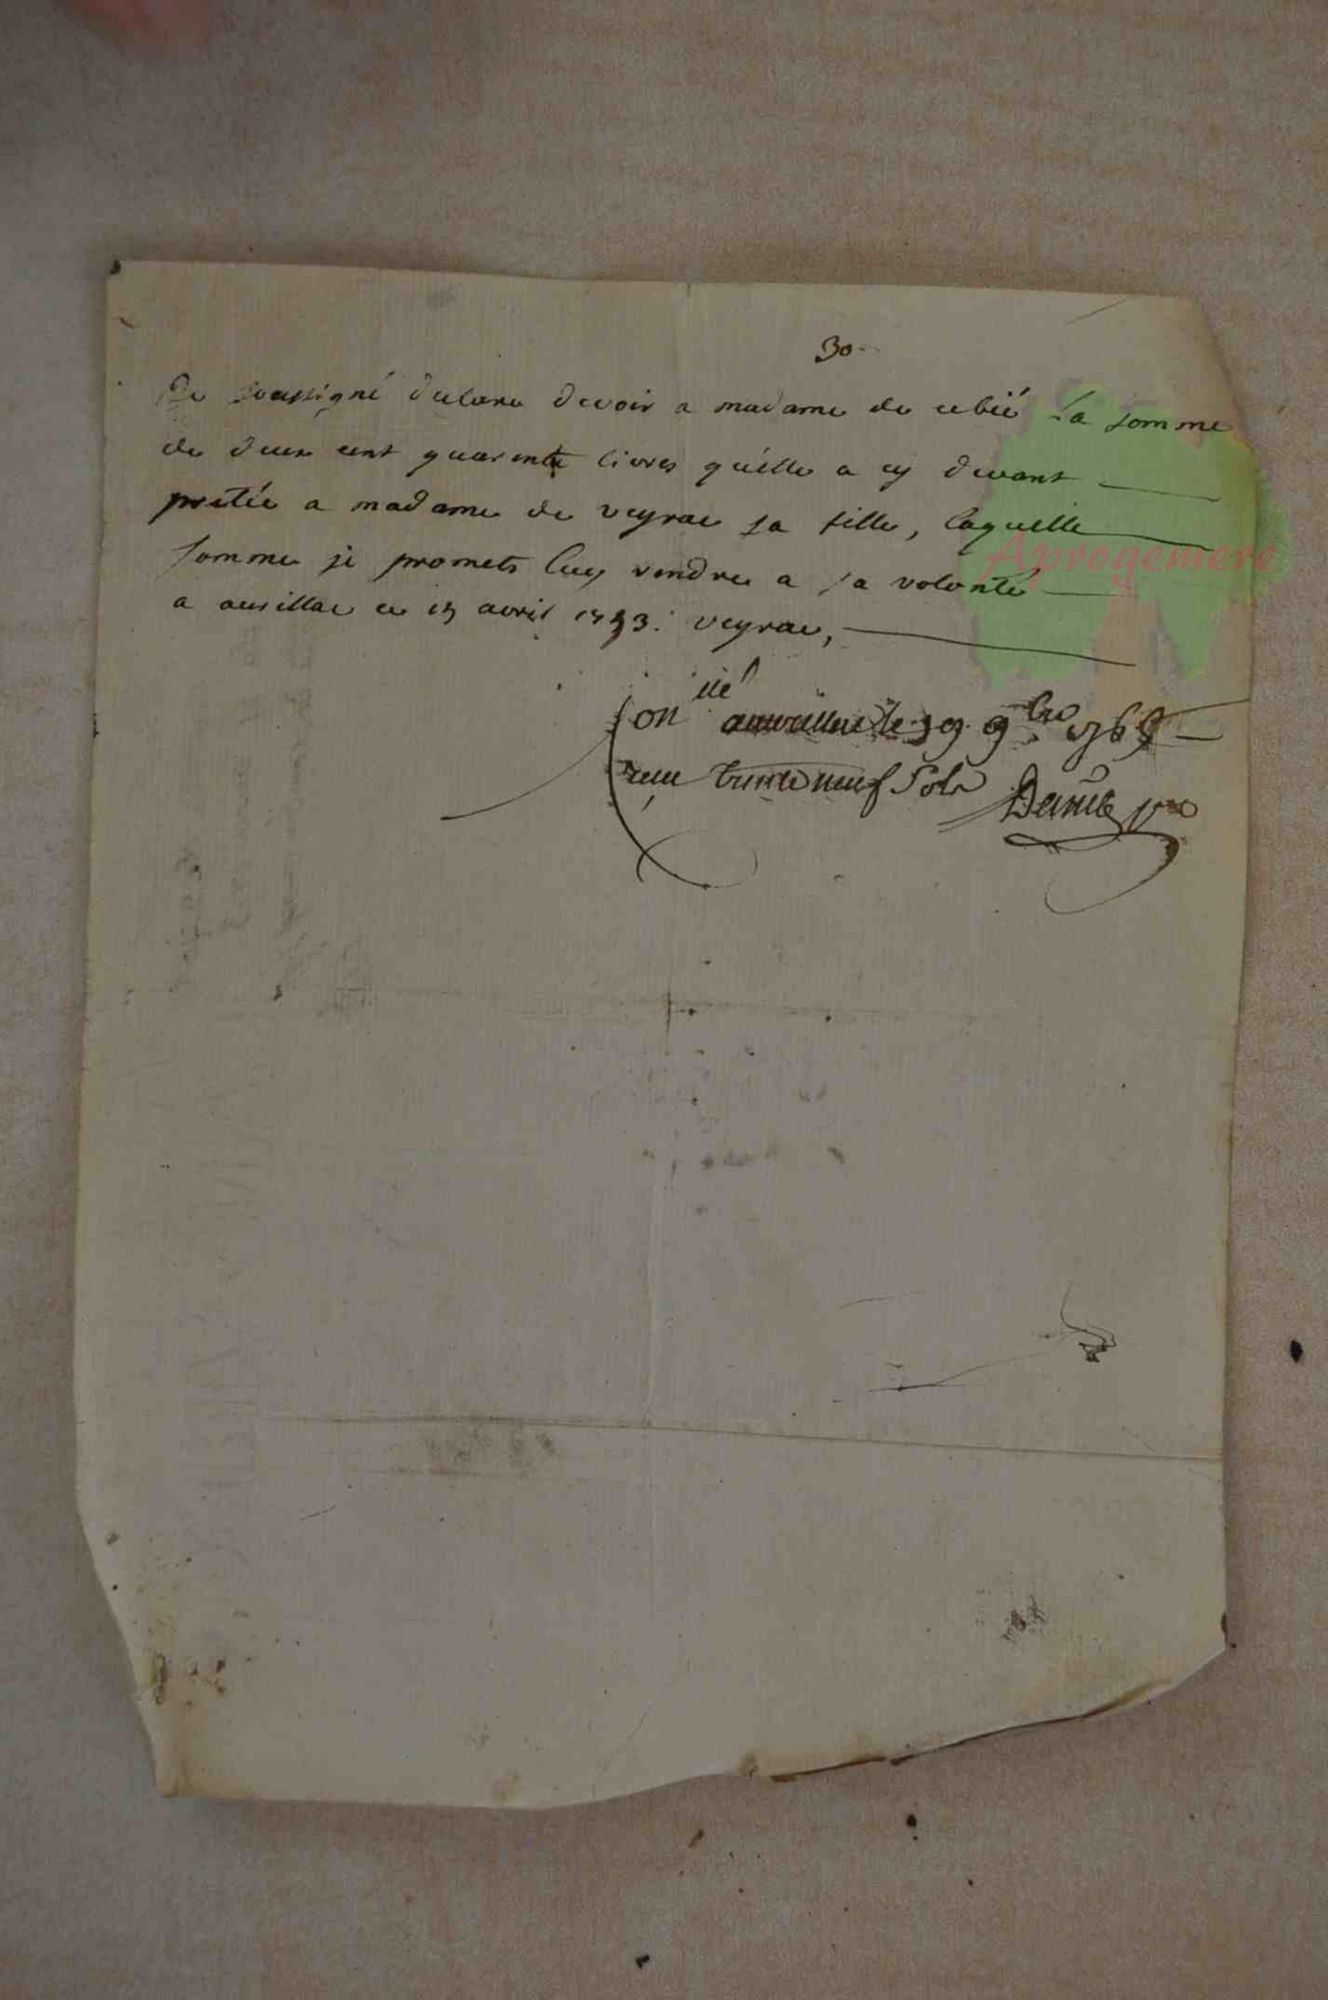 30
Je soussigné declare devoir a madame de cebié la somme
de deux cent quarente livres qu'elle a cy devant
pretée a madame de veyrac sa fille, laquelle
somme je promets luy rendre a sa volonté
a aurillac ce avril veyrac,
Con llé a aurillac le 9bre
reçu trente neuf sols
Aprogemere